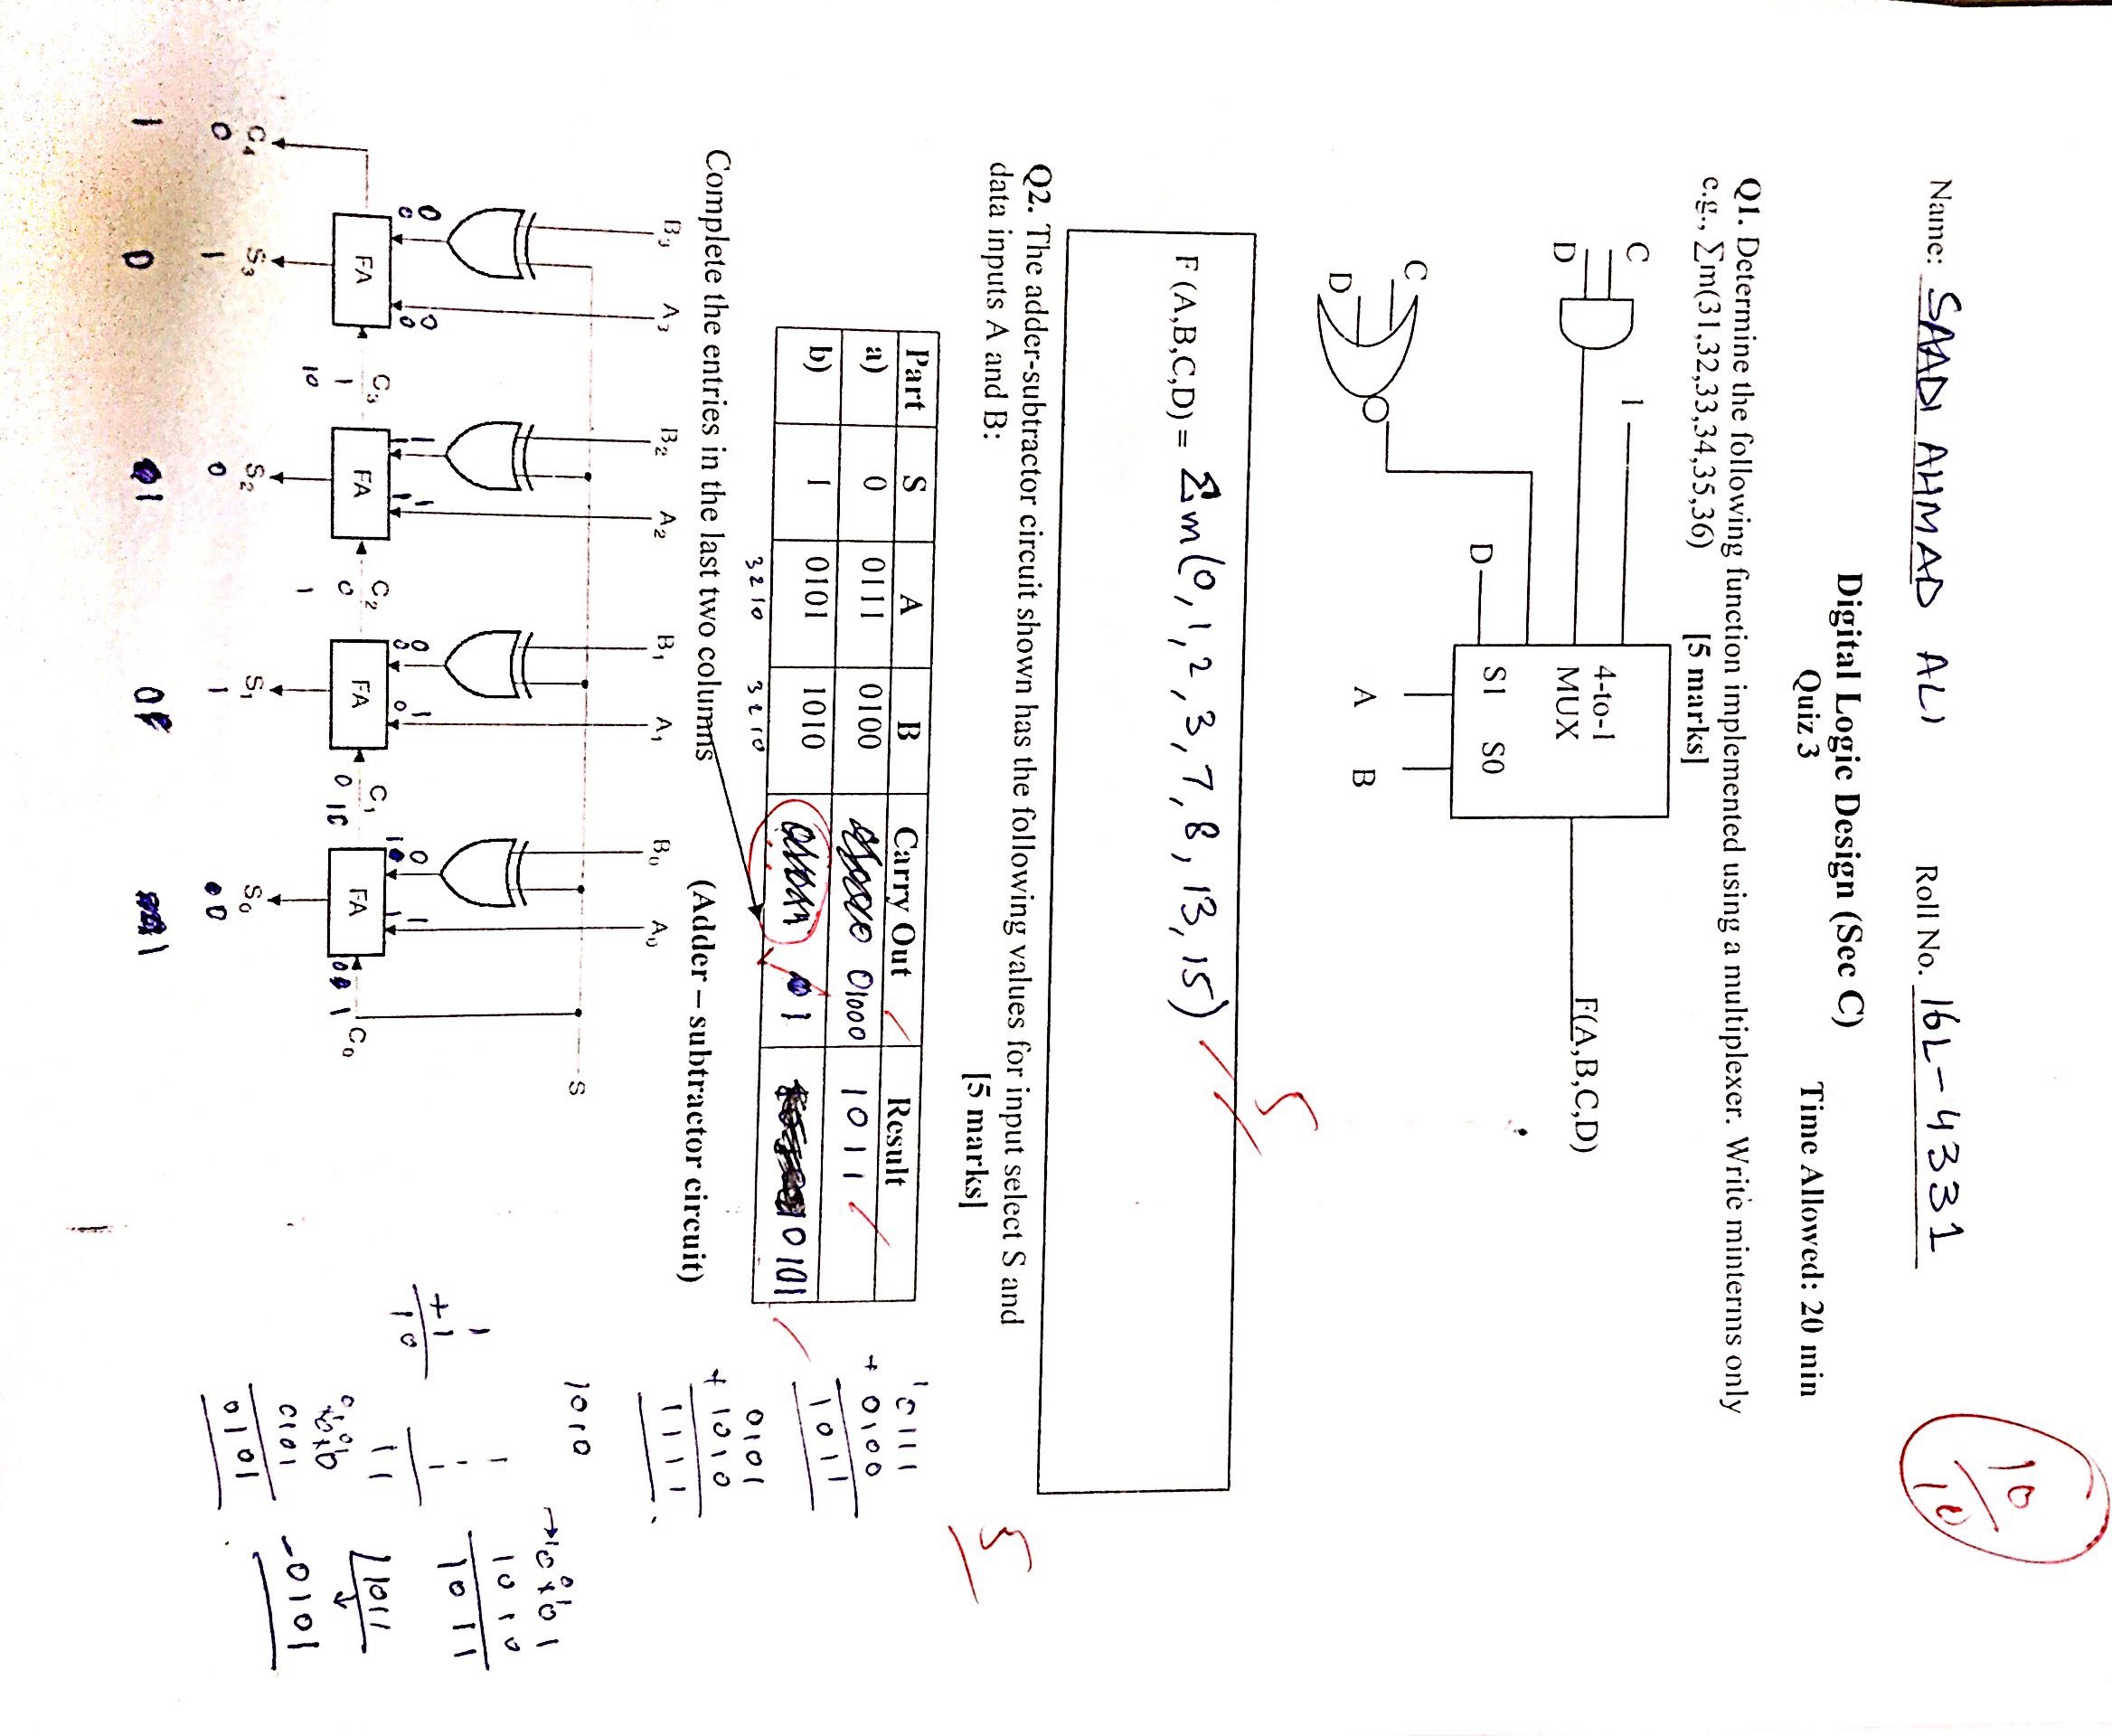 Name: SAADI AHMAD ALI Roll No. 16L-4331
10/10
Digital Logic Design (Sec C)
Quiz 3 Time Allowed: 20 min
Q1. Determine the following function implemented using a multiplexer. Write minterms only
e.g., ∑m(31,32,33,34,35,36) [5 marks]
C
D
1
C
D
D
4-to-1
MUX
S1 S0
A B
F(A,B,C,D)
5
F(A,B,C,D) = Σm(0,1,2,3,7,8,13,15)
Q2. The adder-subtractor circuit shown has the following values for input select S and
data inputs A and B: [5 marks]
5
Part S A B Carry Out Result
a) 0 0111 0100 01000 1011
b) 1 0101 1010 1 0101
3210 3210
Complete the entries in the last two columns (Adder – subtractor circuit)
B3 A3 B2 A2 B1 A1 B0 A0
S
0 0 1 1 0 1 0 1
0 0 1 1 0 0 1 1
FA FA FA FA
C3 C2 C1 C0
1 0 0
10 1
C4 S3 S2 S1 S0
0 1 0 1 0
1 0 1 0 1
0111
+ 0100
1011
0101
+ 1010
1111
1010
1
+1
10
1
1
1
11
0101
0101
1010
1011
1011
-0101